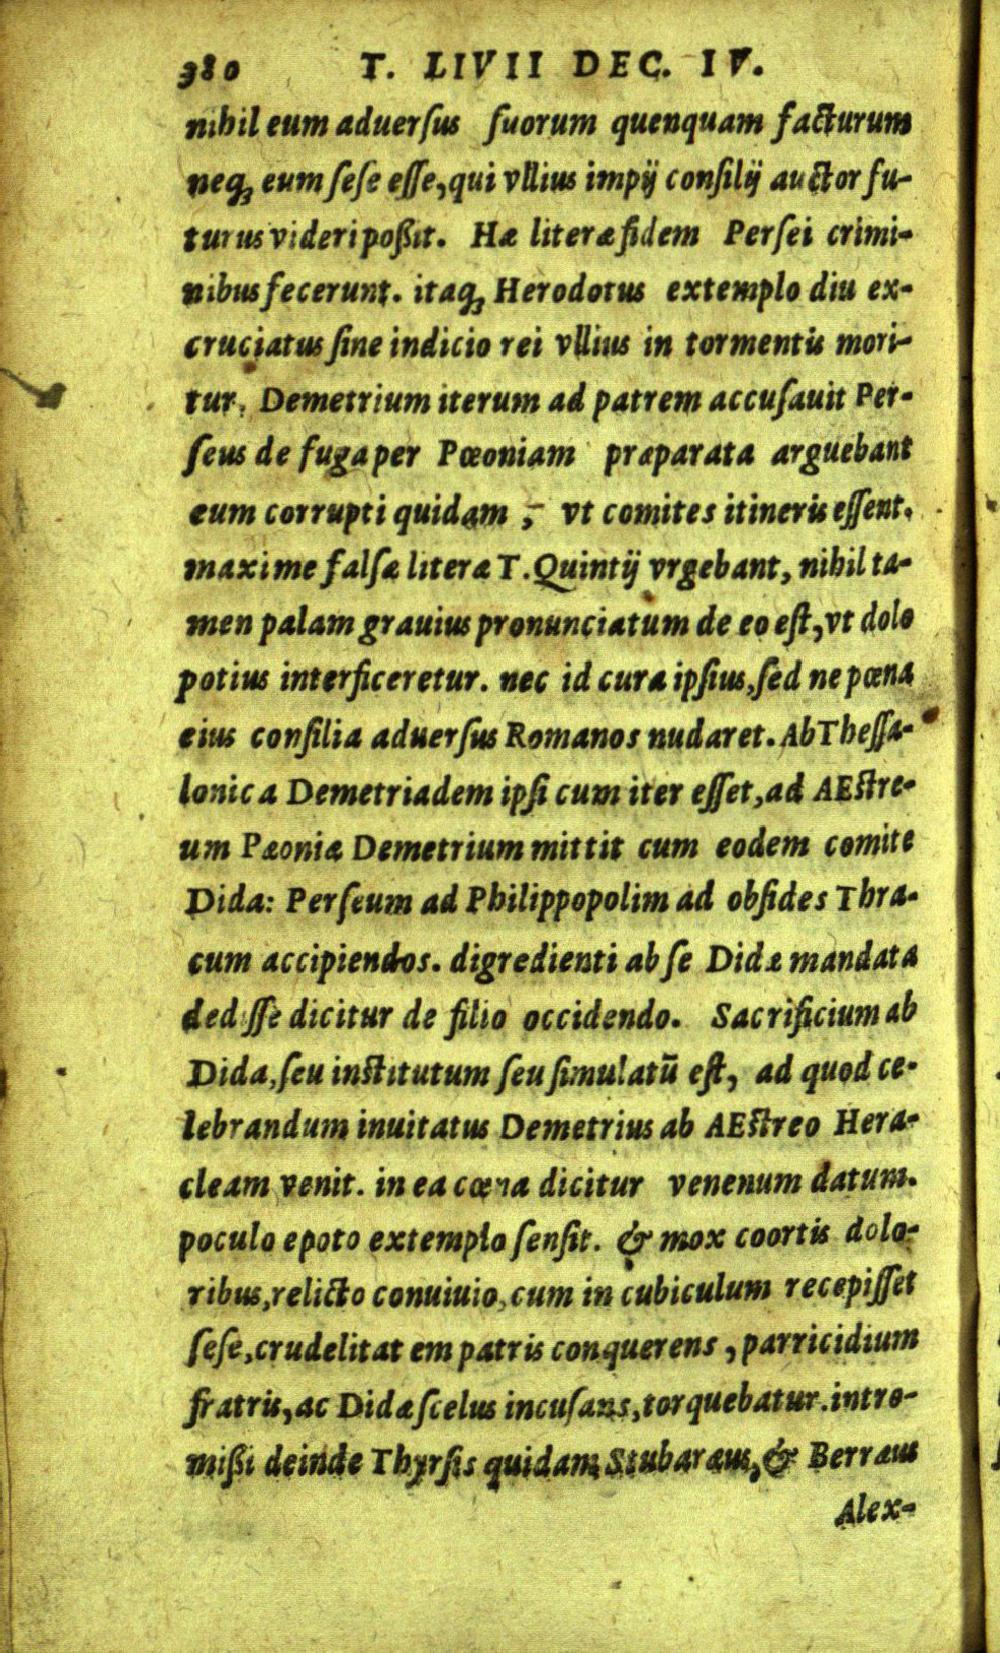 380 T. LIVII DEC. IV.
nihil eum aduerſus ſuorum quenquam facturum
neq; eum ſeſe eſſe, qui vllius impij conſilij auctor fu-
turus videri poßit. Hæ literæ fidem Perſei crimi-
nibus fecerunt. itaq; Herodotus extemplo diu ex-
cruciatus ſine indicio rei vllius in tormentis mori-
tur. Demetrium iterum ad patrem accuſauit Per-
ſeus de fuga per Pœoniam præparata arguebant
eum corrupti quidam, vt comites itineris eſſent.
maxime falſæ literæ T. Quintij vrgebant, nihil ta-
men palam grauius pronunciatum de eo eſt, vt dolo
potius interficeretur. nec id cura ipſius, ſed ne pœna
eius conſilia aduerſus Romanos nudaret. Ab Theſſa-
lonica Demetriadem ipſi cum iter eſſet, ad AEſtre-
um Pæoniæ Demetrium mittit cum eodem comite
Dida: Perſeum ad Philippopolim ad obſides Thra-
cum accipiendos. digredienti ab ſe Didæ mandata
dediſſe dicitur de filio occidendo. Sacrificium ab
Dida, ſeu inſtitutum ſeu ſimulatū eſt, ad quod ce-
lebrandum inuitatus Demetrius ab AEſtreo Hera-
cleam venit. in ea cœna dicitur venenum datum.
poculo epoto extemplo ſenſit. & mox coortis dolo-
ribus, relicto conuiuio, cum in cubiculum recepiſſet
ſeſe, crudelitatem patris conquerens, parricidium
fratris, ac Didæ ſcelus incuſans, torquebatur. intro-
mißi deinde Thyrſis quidam Stubaræus, & Berræus
Alex-